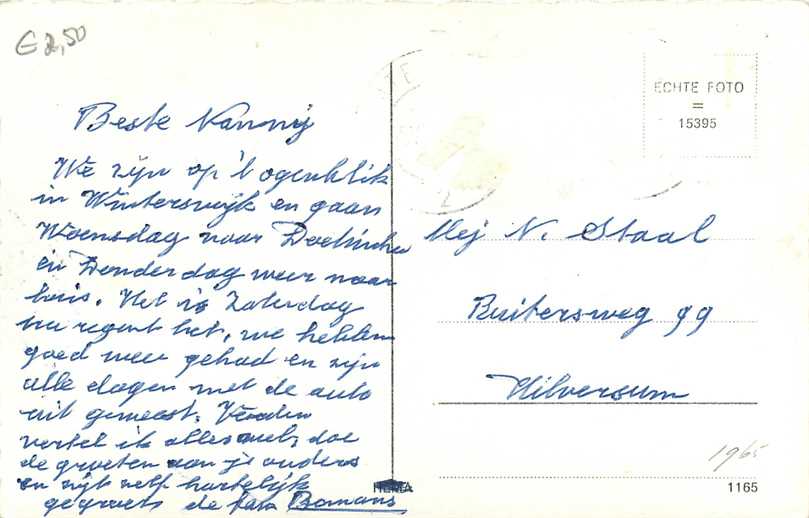 € 2,50
Beste Nannij
We zijn op 't ogenblik
in Winterswijk en gaan
Woensdag naar Doetinchem
en Donderdag weer naar
huis. Het is Zaterdag
nu regent het, we hebben
goed weer gehad en zijn
alle dagen met de auto
uit geweest. Verder
vertel ik alles wel, doe
de groeten aan je ouders
en zijt zelf hartelijk
gegroet de fam Bomans
ECHTE FOTO
=
15395
Mej N. Staal
Buitersweg 99
Hilversum
1965
HEMA
1165